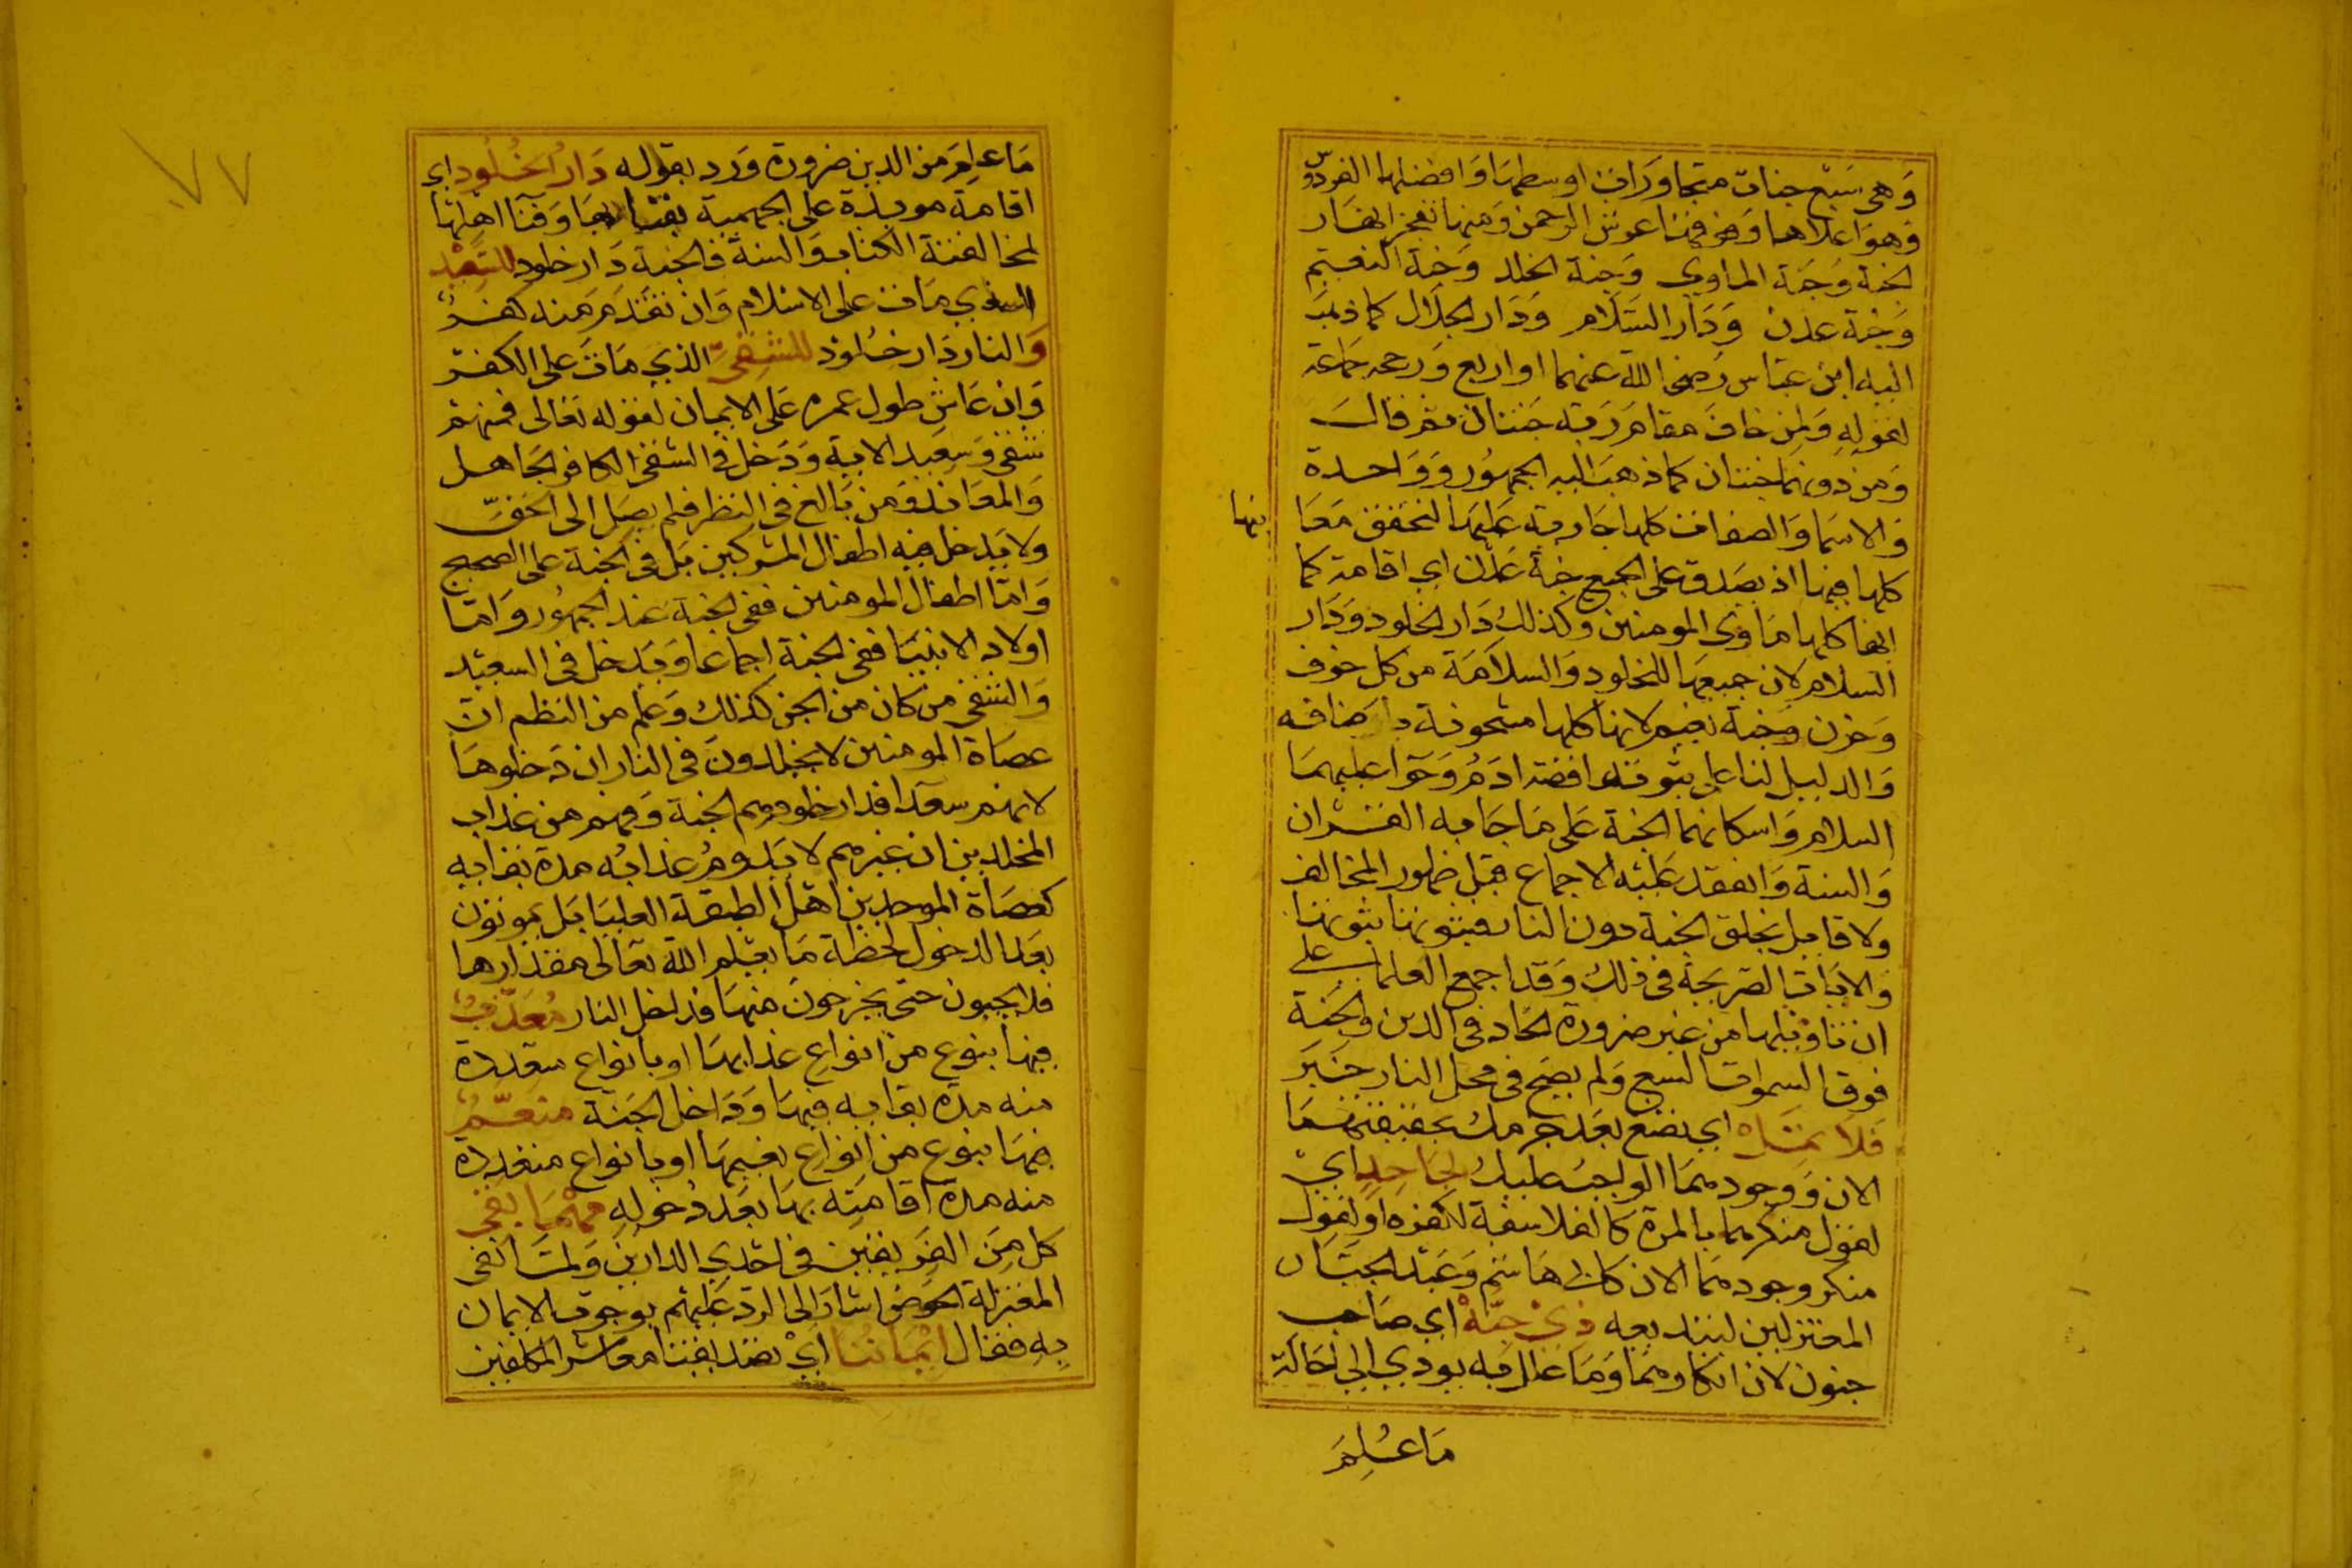 وهي سبع جنات متجاورات اوسطها وافضلها الفردوس
وهو اعلاها وفوقها عرش الرحمن ومنها تفجر انهار
الجنة وجنة الماوي وجنة الخلد وجنة النعيم
وجنة عدن ودار السلام ودار الجلال كما ذهب
اليه ابن عباس رضي الله عنهما او اربع ورجحه جماعة
لقوله ولمن خاف مقام ربه جنتان ثم قال
ومن دونهما جنتان كما ذهب اليه الجمهور وواحدة
والاسما والصفات كلها جارية عليها لتحقق معا
نيها
كلها فيها اذ يصدق على الجميع جنة عدن اي اقامة كما
انها كلها ماوى المومنين وكذلك دار الخلود ودار
السلام لان جميعها للخلود والسلامة من كل خوف
وحزن وجنة نعيم لانها كلها مشحونة باصنافه
والدليل لنا على ثبوته قصة ادم وحوا عليهما
السلام واسكانهما الجنة على ما جا به القران
والسنة وانعقد عليه الاجماع قبل ظهور المخالف
ولا قايل بخلق الجنة دون النار فثبوتها ثبوتها
والايات الصريحة في ذلك وقد اجمع العلما على
ان تاويلها من غير ضرورة الحاد في الدين والجنة
فوق السموات السبع ولم يصح في محل النار خبر
فلا تمل اي تصغ بعد جزمك بحقيقتهما
الان ووجودهما الواجب عليك لجاحد اي
لقول منكرهما بالمرة كالفلاسفة لكفره او لقول
منكر وجودهما الان كابي هاشم وعبد الجبار
المعتزلين لبتديعه ذي جنه اي صاحب
جنون لان انكارهما وما عال به يودي الي احالة
ما علم
٧٧
ما علم من الدين ضرورة ورد بقوله دار الخلود اي
اقامة موبدة على الجهمية بفنايهما وفنا اهلهما
لمخالفته الكتاب والسنة فالجنة دار خلود للسعيد
الذي مات على الاسلام وان تقدم منه كفر
والنار دار خلود للشقي الذي مات على الكفر
وان عاش طول عمره على الايمان لقوله تعالى فمنهم
شقي وسعيد الاية ودخل في الشقي الكافر الجاهل
والمعاند ومن بالغ في النظر فلم يصل الى الحق
ولا يدخل فيه اطفال المشركين بل في الجنة على الصحيح
واما اطفال المومنين ففي الجنة عند الجمهور واما
اولاد الانبيا ففي الجنة اجماعا ويدخل في السعيد
والشقي من كان من الجن كذلك وعلم من النظم ان
عصاة المومنين لا يخلدون في النار ان دخلوها
لانهم سعدا فدار خلودهم الجنة وفهم من عذاب
المخلدين ان غيرهم لا يدوم عذابه مدة بقايه
كعصاة الموحدين اهل الطبقة العليا بل يموتون
بعد الدخول لحظة ما يعلم الله تعالى مقدارها
فلا يحيون حتى يخرجون منها فداخل النار معذب
فيها بنوع من انواع عذابها او بانواع متعددة
منه مدة بقايه فيها وداخل الجنة منعم
فيها بنوع من انواع نعيمها او بانواع متعددة
منه مدة اقامته بها بعد دخوله مهما بقى
كل من الفريقين في احدي الدارين ولما نفى
المعتزلة الحوض اشار الى الرد عليهم بوجوب الايمان
به فقال ايماننا اي تصديقنا معاشر المكلفين